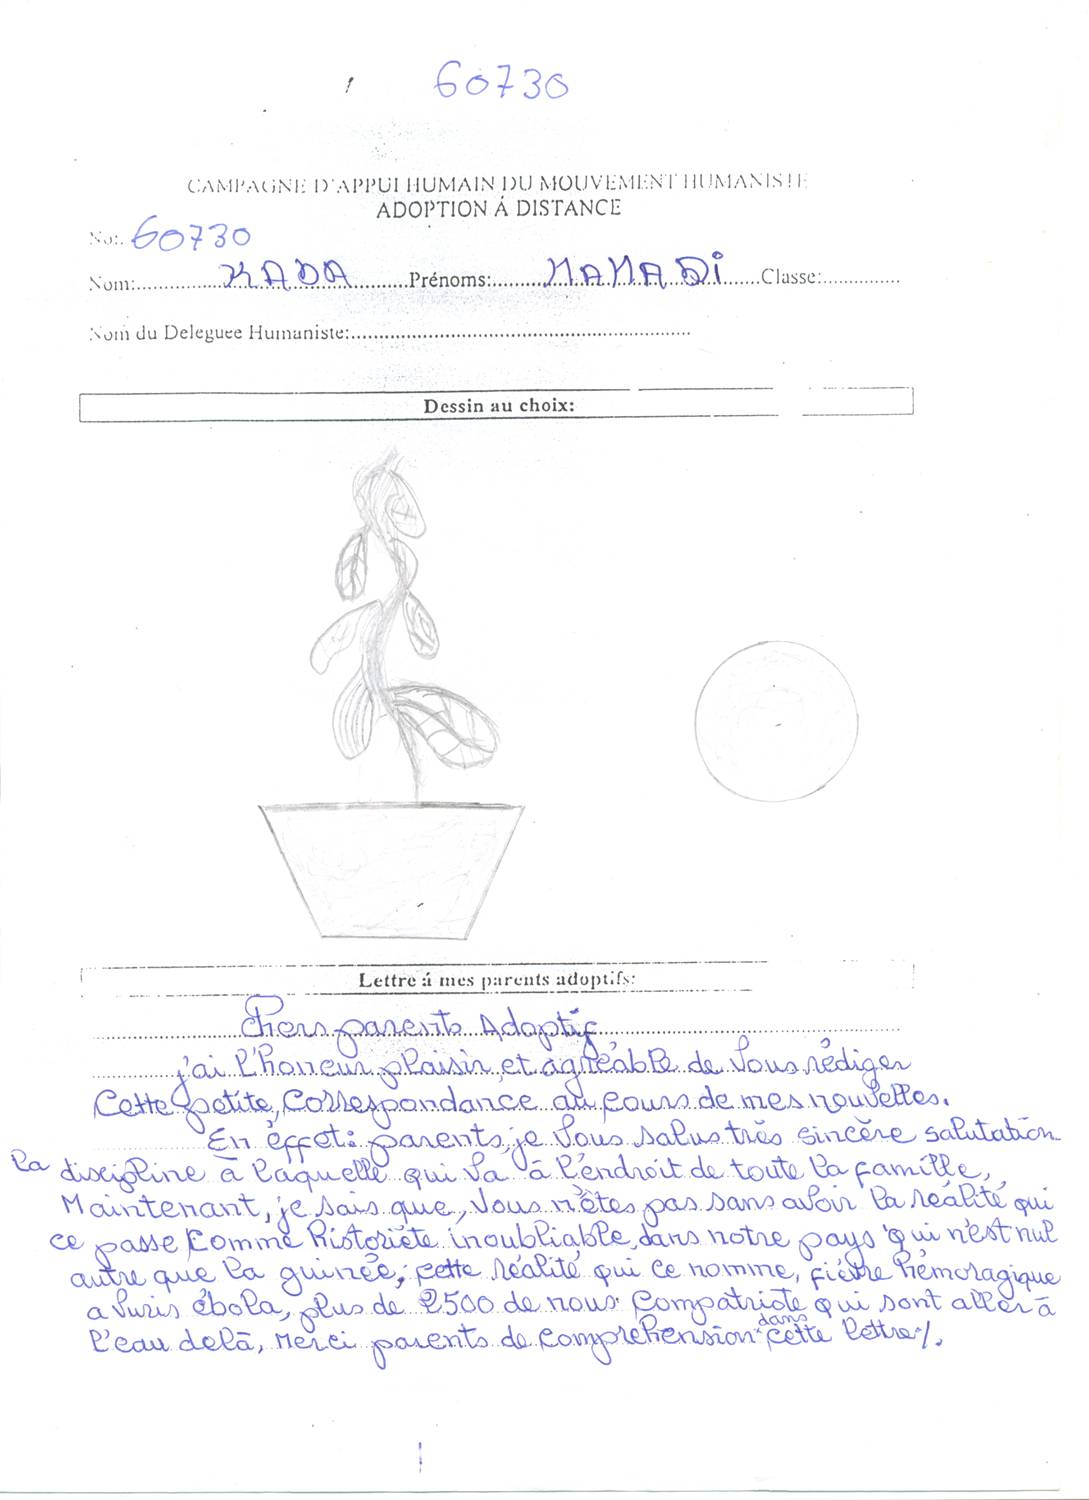 60730
CAMPAGNE D'APPUI HUMAIN DU MOUVEMENT HUMANISTE
ADOPTION Á DISTANCE
No:. 60730
Nom:.............KADA.........Prénoms:........MAMADI......Classe:..............
Nom du Deleguee Humaniste:......................................................
Dessin au choix:
Lettre á mes parents adoptifs:
Chers parents Adoptif
j'ai l'honneur, plaisir, et agréable de vous rédiger
Cette petite, Correspondance au cours de mes nouvelles.
En éffet: parents, je vous salus très sincère salutation
la discipline à laquelle qui va à l'endroit de toute la famille,
Maintenant, je sais que, vous n'êtes pas sans avoir la réalité qui
ce passe comme historiéte inoubliable, dans notre pays qui n'est nul
autre que la guinée, cette réalité qui ce nomme, fiévre hémoragique
a vuris ébola, plus de 2500 de nous compatriote qui sont aller à
l'eau delà, Merci parents de compréhension dans cette lettre/.